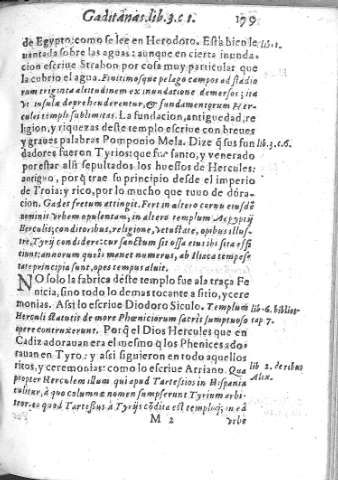 Gaditanas. lib. 3. c 1. 179
de Egypto: como se lee en Herodoto. Esta bien le lib. 1.
uantada sobre las aguas: aunque en cierta inunda-
cion escriue Strabon por cosa muy particular que
la cubrio el agua. Finitimosque pelago campos ad stadio
rum triginta altitudinem ex inundatione demersos; ita
vt insula deprehenderentur, & fundamentorum Her-
culei templi sublimitas. La fundacion, antiguedad, re
ligion, y riquezas deste templo escriue con breues
y graues palabras Pomponio Mela. Dize q̃ sus fun lib. 3. c. 6.
dadores fueron Tyrios: que fue santo, y venerado
por estar alli sepultados los huessos de Hercules:
antiguo, porq̃ trae su principio desde el imperio
de Troia: y rico, por lo mucho que tuuo de dona-
cion. Gades fretum attingit. Fert in altero cornu eiusdẽ
nominis vrbem opulentam, in altero templum Aegyptij
Herculis; conditoribus, religione, vetustate, opibus illus-
tre, Tyrij condidere: cur sanctum sit ossa eius ibi sita effi
ciunt: annorum queis manet numerus, ab Iliaca tempes-
tate principia sunt, opes tempus aluit.
NO solo la fabrica deste templo fue a la traça Fe
nicia, sino todo lo demas tocante a sitio, y cere
monias. Assi lo escriue Diodoro Siculo. Templum lib. 6. biblio-
Herculi statutis de more Phœniciorum sacris sumptuoso cap. 7.
opere contruxerunt. Porq̃ el Dios Hercules que en
Cadiz adorauan era el mesmo q̃ los Phenices ado-
rauan en Tyro: y assi siguieron en todo aquellos
ritos, y ceremonias: como lo escriue Arriano. Qua lib 2. de rebus
propter Herculem illum qui apud Tartessios in Hispania Alex.
colitur, à quo columnæ nomen sumpserunt Tyrium arbi-
tror: eo quod Tartessus à Tyrijs cõdita est templũq; in eâ
M 2 vrbe